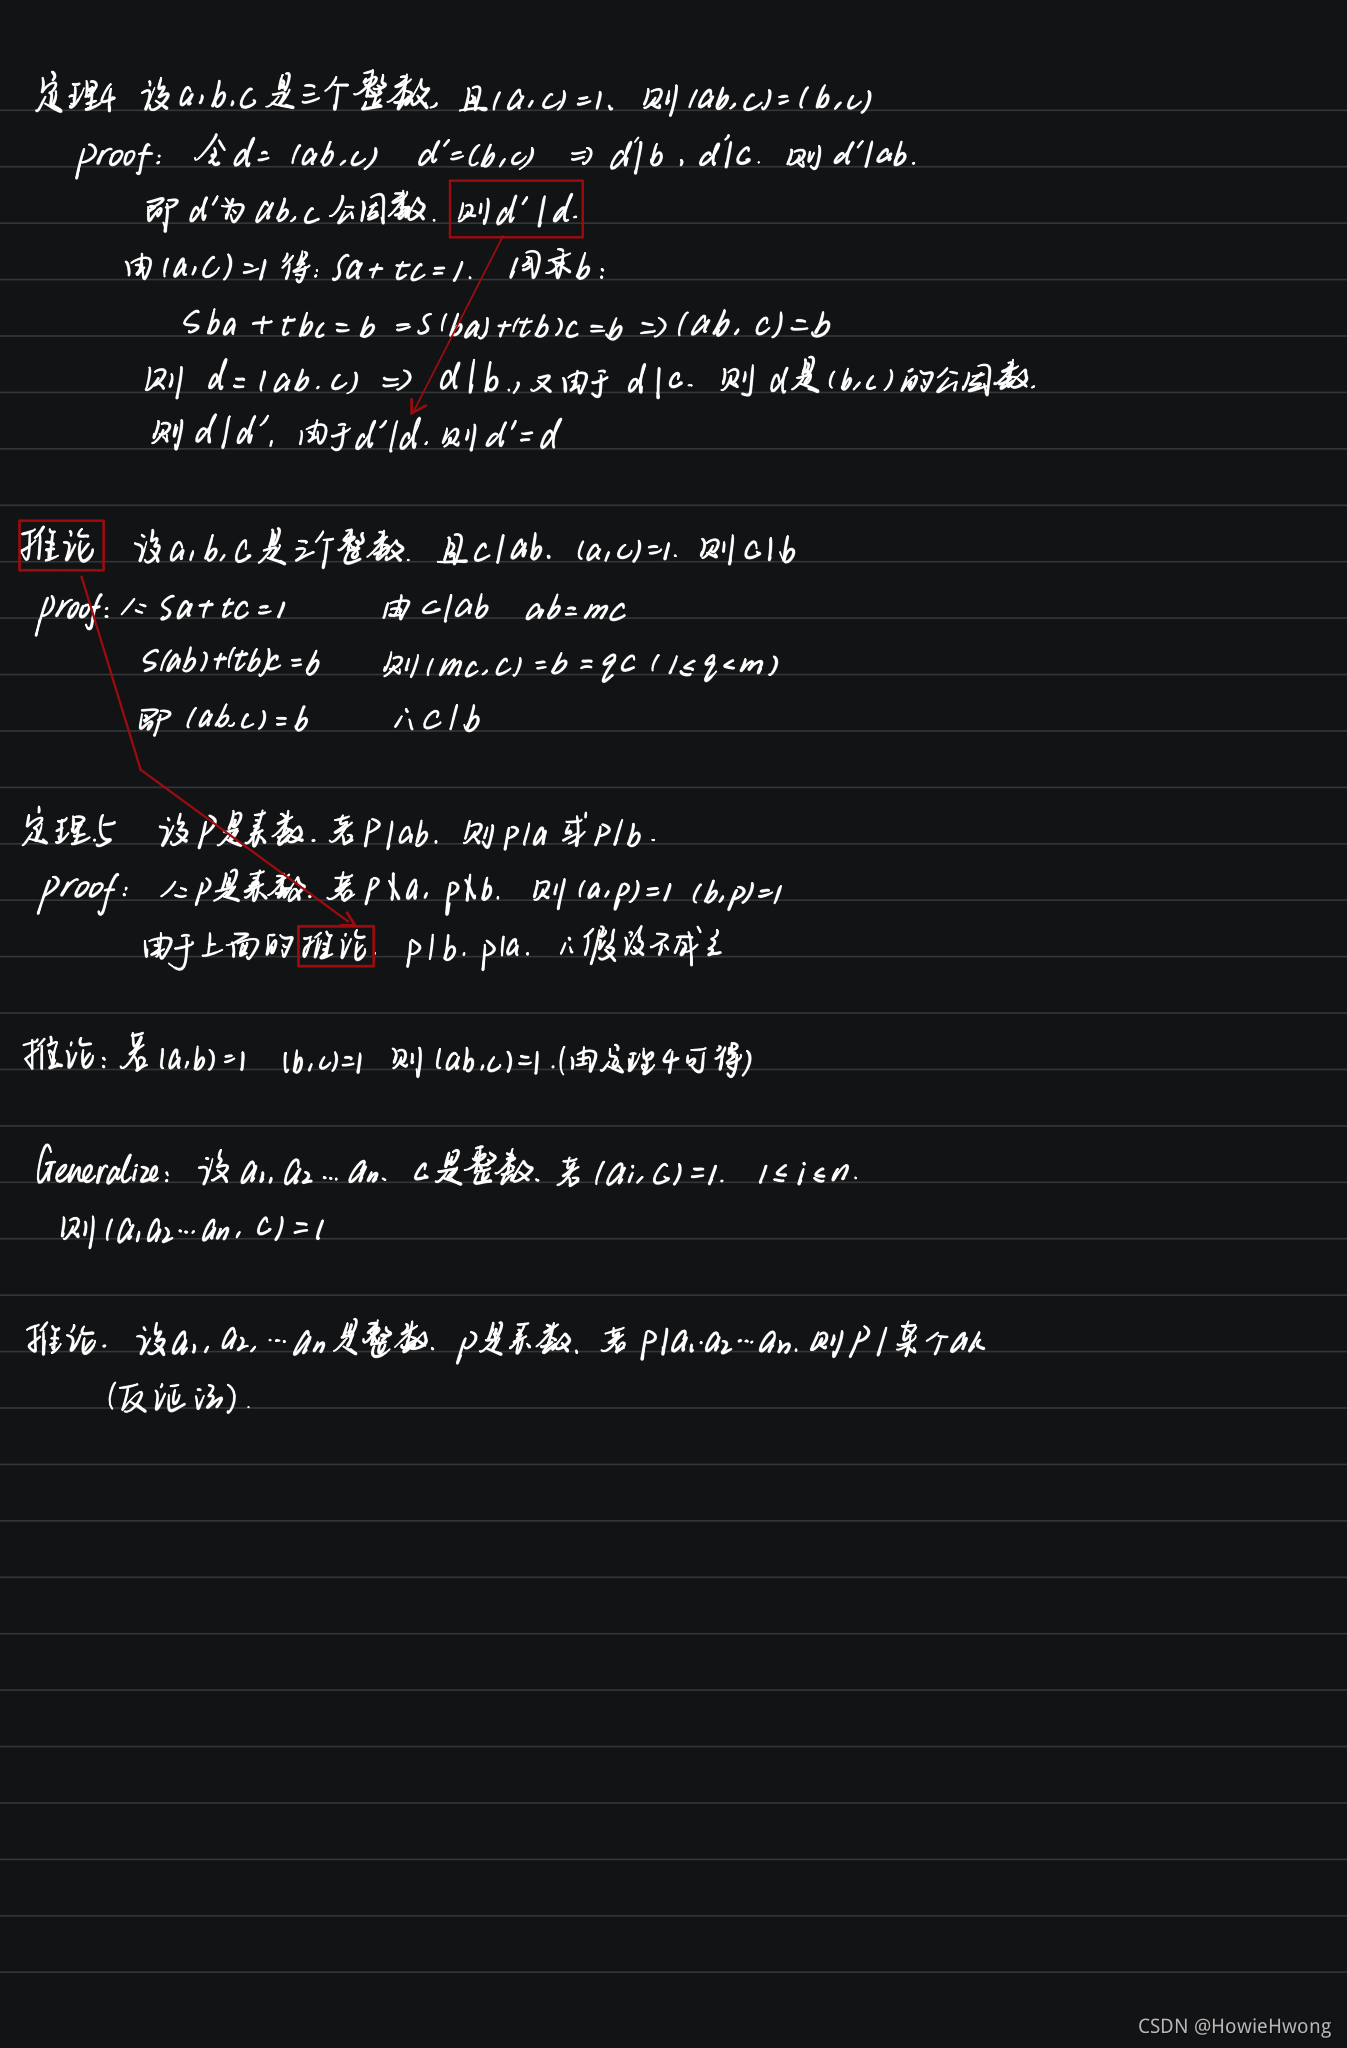 定理4 设a,b,c是三个整数,且(a,c)=1、则(ab,c)=(b,c)
proof: 令d=(ab,c) d'=(b,c) ⇒ d'|b、d'|c. 则d'|ab.
即d'为ab,c公因数. 则d'|d.
由(a,c)=1得: sa+tc=1. 同乘b:
sba+tbc=b =s(ba)+(tb)c=b ⇒(ab,c)=b
则 d=(ab,c) ⇒ d|b., 又由于d|c. 则d是(b,c)的公因数.
则d|d', 由于d'|d. 则d'=d
推论 设a,b,c是三个整数. 且c|ab. (a,c)=1. 则c|b
proof: ∵ sa+tc=1 由c|ab ab=mc
s(ab)+(tb)c=b 则(mc,c)=b=qc (1≤q<m)
即(ab,c)=b ∴c|b
定理5 设p是素数.若p|ab.则p|a或p|b.
proof: ∵p是素数.若p∤a,p∤b. 则(a,p)=1 (b,p)=1
由于上面的推论. p|b. p|a. ∴假设不成立
推论: 若(a,b)=1 (b,c)=1 则(ab,c)=1.(由定理4可得)
Generalize: 设a₁,a₂…an、c是整数、若(ai,c)=1. 1≤i≤n.
则(a₁a₂…an,c)=1
推论. 设a₁,a₂,…an是整数、p是素数、若p|a₁·a₂…an.则p|某个ak
(反证法).
CSDN @HowieHwong